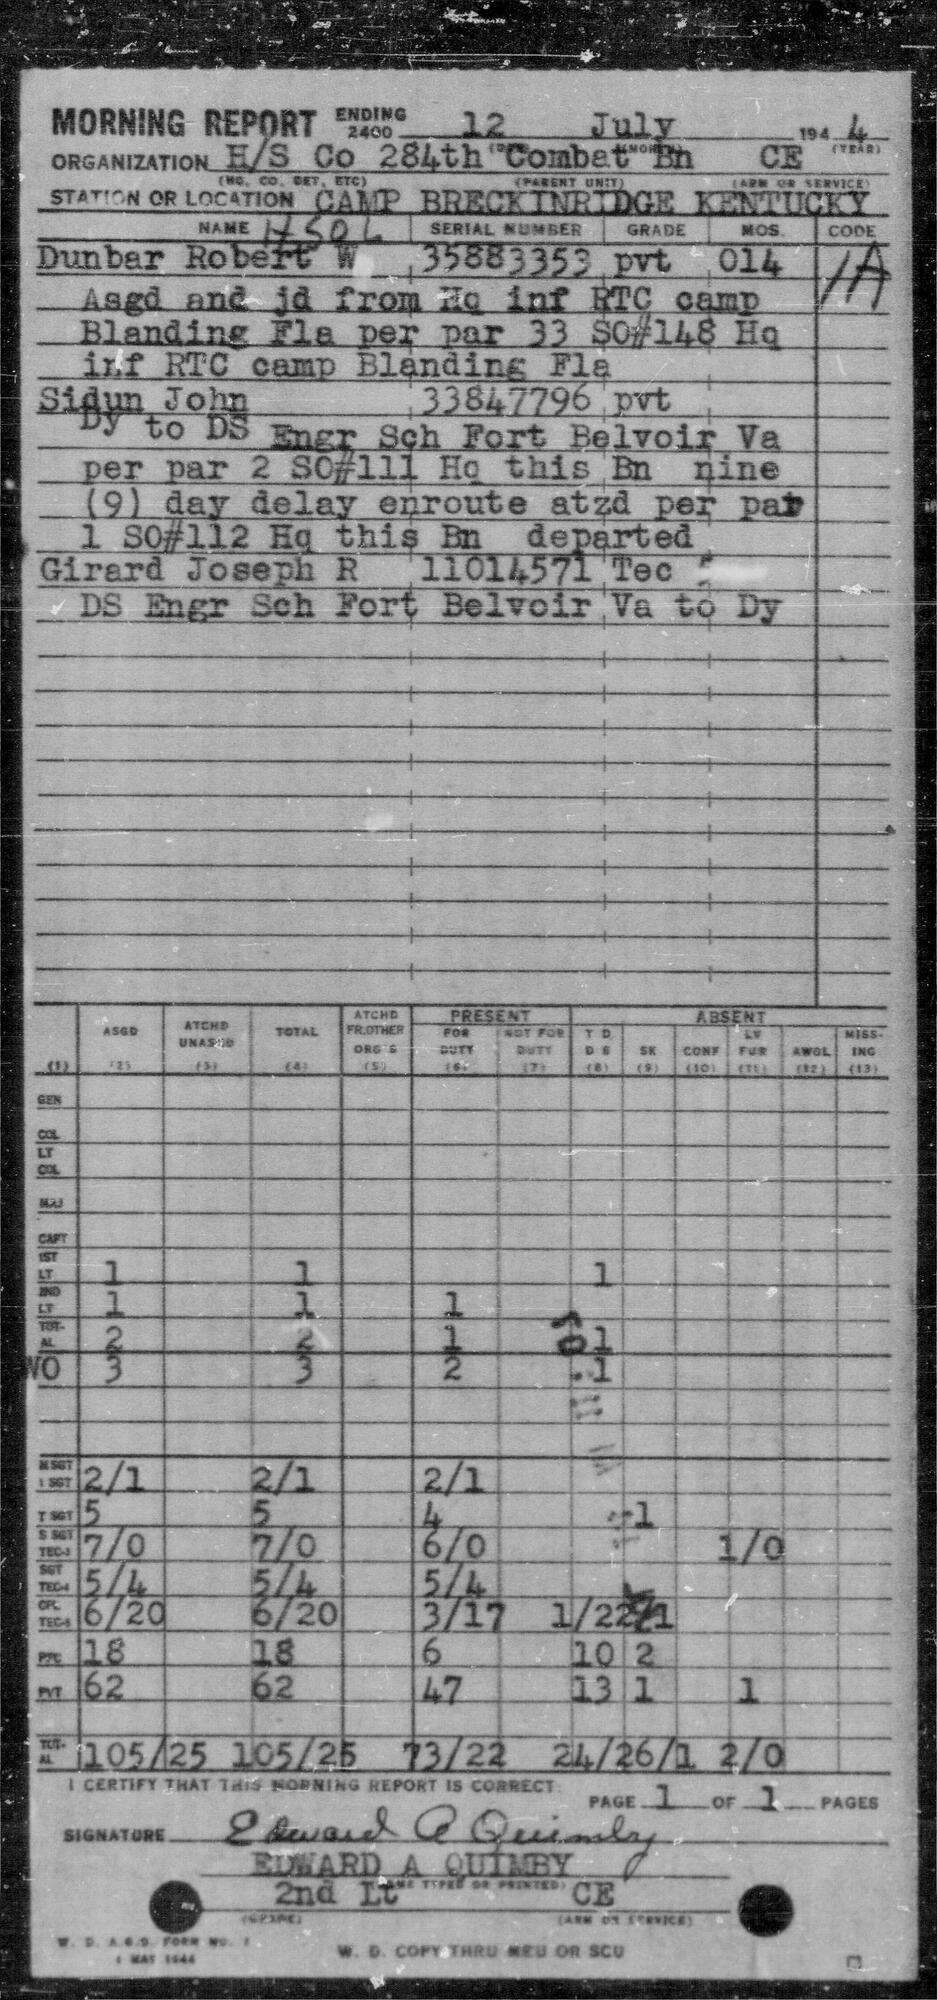 MORNING REPORT ENDING 2400 12 July 194 4
(DAY) (MONTH) (YEAR)
ORGANIZATION H/S Co 284th Combat Bn CE
(HQ. CO. DET, ETC) (PARENT UNIT) (ARM OR SERVICE)
STATION OR LOCATION CAMP BRECKINRIDGE KENTUCKY
NAME SERIAL NUMBER GRADE MOS. CODE
Dunbar Robert W 35883353 pvt 014 1A
Asgd and jd from Hq inf RTC camp
Blanding Fla per par 33 SO#148 Hq
inf RTC camp Blanding Fla
Sidun John 33847796 pvt
Dy to DS Engr Sch Fort Belvoir Va
per par 2 SO#111 Hq this Bn nine
(9) day delay enroute atzd per par
1 SO#112 Hq this Bn departed
Girard Joseph R 11014571 Tec
DS Engr Sch Fort Belvoir Va to Dy
PRESENT ABSENT
ASGD ATCHD UNASGD TOTAL ATCHD FR.OTHER ORG'S FOR DUTY NOT FOR DUTY T D D S SK CONF LV FUR AWOL MISS-ING
(1) (2) (3) (4) (5) (6) (7) (8) (9) (10) (11) (12) (13)
GEN
COL
LT COL
MAJ
CAPT
1ST LT 1 1 1
2ND LT 1 1 1
TOT-AL 2 2 1 1
WO 3 3 2 1
M SGT 1 SGT 2/1 2/1 2/1
T SGT 5 5 4 1
S SGT TEC-3 7/0 7/0 6/0 1/0
SGT TEC-4 5/4 5/4 5/4
CPL TEC-5 6/20 6/20 3/17 1/2 /1
PFC 18 18 6 10 2
PVT 62 62 47 13 1 1
TOT-AL 105/25 105/25 73/22 24/2 6/1 2/0
I CERTIFY THAT THIS MORNING REPORT IS CORRECT:
PAGE 1 OF 1 PAGES
SIGNATURE Edward A Quimby
EDWARD A QUIMBY
(NAME TYPED OR PRINTED)
2nd Lt CE
(GRADE) (ARM OR SERVICE)
W. D. A.G.O. FORM NO. 1
1 MAY 1944
W. D. COPY THRU MRU OR SCU